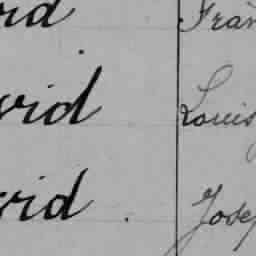 vid Fran
vid Louis
vid Josep